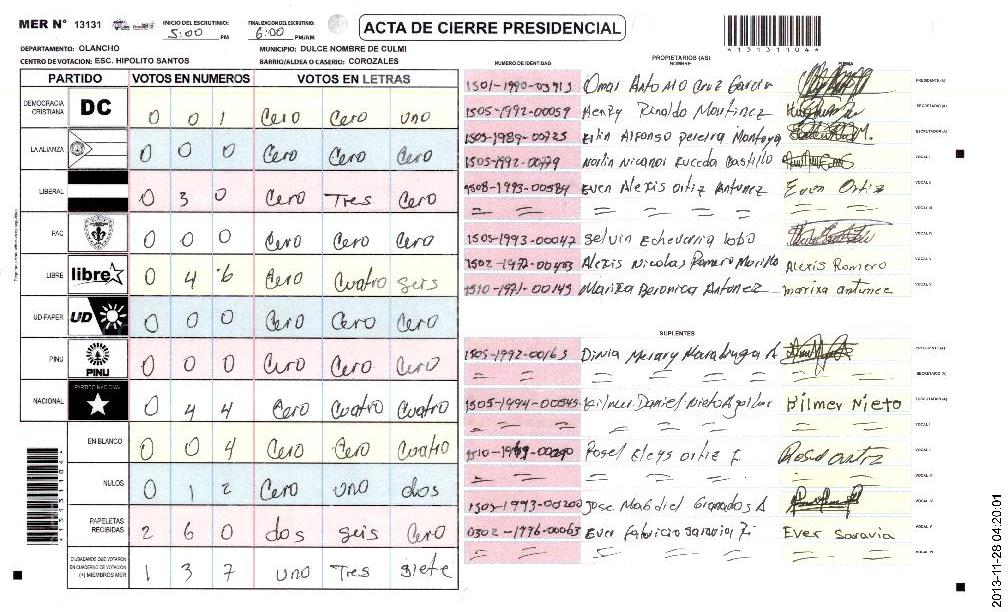 MER N° 13131 INICIO DEL ESCRUTINIO: 5:00 PM FINALIZACION DEL ESCRUTINIO: 6:00 PM/AM ACTA DE CIERRE PRESIDENCIAL
DEPARTAMENTO: OLANCHO MUNICIPIO: DULCE NOMBRE DE CULMI
CENTRO DE VOTACION: ESC. HIPOLITO SANTOS BARRIO/ALDEA O CASERIO: COROZALES
PARTIDO VOTOS EN NUMEROS VOTOS EN LETRAS
DEMOCRACIA CRISTIANA DC 0 0 1 Cero Cero uno
LA ALIANZA 0 0 0 Cero Cero Cero
LIBERAL 0 3 0 Cero Tres Cero
PAC 0 0 0 Cero Cero Cero
LIBRE libre 0 4 6 Cero Cuatro seis
UD-FAPER UD 0 0 0 Cero Cero Cero
PINU PINU 0 0 0 Cero Cero Cero
NACIONAL PARTIDO NACIONAL 0 4 4 Cero Cuatro Cuatro
EN BLANCO 0 0 4 Cero Cero Cuatro
NULOS 0 1 2 Cero uno dos
PAPELETAS RECIBIDAS 2 6 0 dos seis Cero
CIUDADANOS QUE VOTARON EN CUADERNO DE VOTACION (+) MIEMBROS MER 1 3 7 uno Tres siete
4131311044
NUMERO DE IDENTIDAD PROPIETARIOS (AS) NOMBRE FIRMA
1501-1990-03913 Omar Antonio Cruz Garcia PRESIDENTE (A)
1505-1992-00059 Henry Rinaldo Martinez SECRETARIO (A)
1505-1989-00725 Alfonso pereira Montoya ESCRUTADOR (A)
1505-1992-00779 Nicanor Euceda Castillo VOCAL I
1508-1993-00584 Even Alexis ortiz Antunez Even Ortiz VOCAL II
= = = = = = = VOCAL III
1505-1993-00047 Selvin Echeverria lobo
1502-1972-00403 Alexis Nicolas Romero Murillo Alexis Romero
1510-1971-00145 Maritza Beronica Antonez maritza antunez
SUPLENTES
1505-1992-00163 PRESIDENTE (A)
= = = = = = SECRETARIO (A)
1505-1994-00545 Hilmer Daniel Nieto Aguilar Hilmer Nieto ESCRUTADOR (A)
VOCAL I
Rosel ortiz VOCAL II
1501-1993-00200 Jose Granados A
0302-1976-00063 Ever fabricio saravia Z. Ever Saravia VOCAL V
2013-11-28 04:20:01